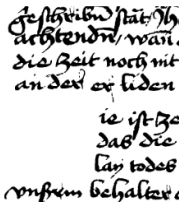 geschribn̄ stat Jh
achtendn̄ / wan̄ d
die zeit noch nit
an der er liden
ie ist ze
das die
lay todes
vnsrrm behalter